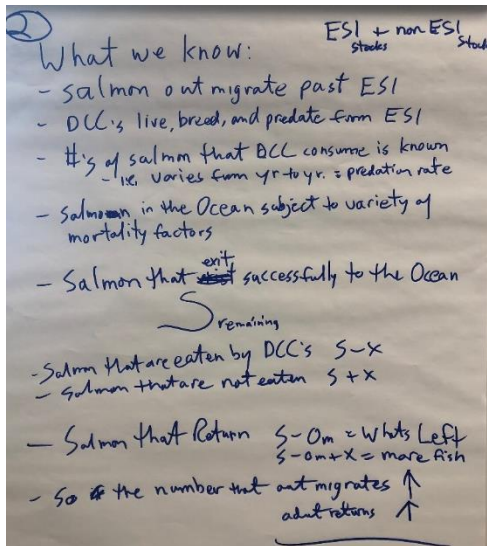 2
ESI + non ESI
Stocks Stock
What we know:
- Salmon out migrate past ESI
- DCC's live, breed, and predate from ESI
- #'s of salmon that DCC consume is known
- i.e. varies from yr to yr. = predation rate
- Salmon in the Ocean subject to variety of
mortality factors
- Salmon that exit successfully to the Ocean
S remaining
- Salmon that are eaten by DCC's S-X
- Salmon that are not eaten S+X
- Salmon that Return S-Om = Whats Left
S-Om+X = more fish
- So if the number that out migrates ↑
adult returns ↑